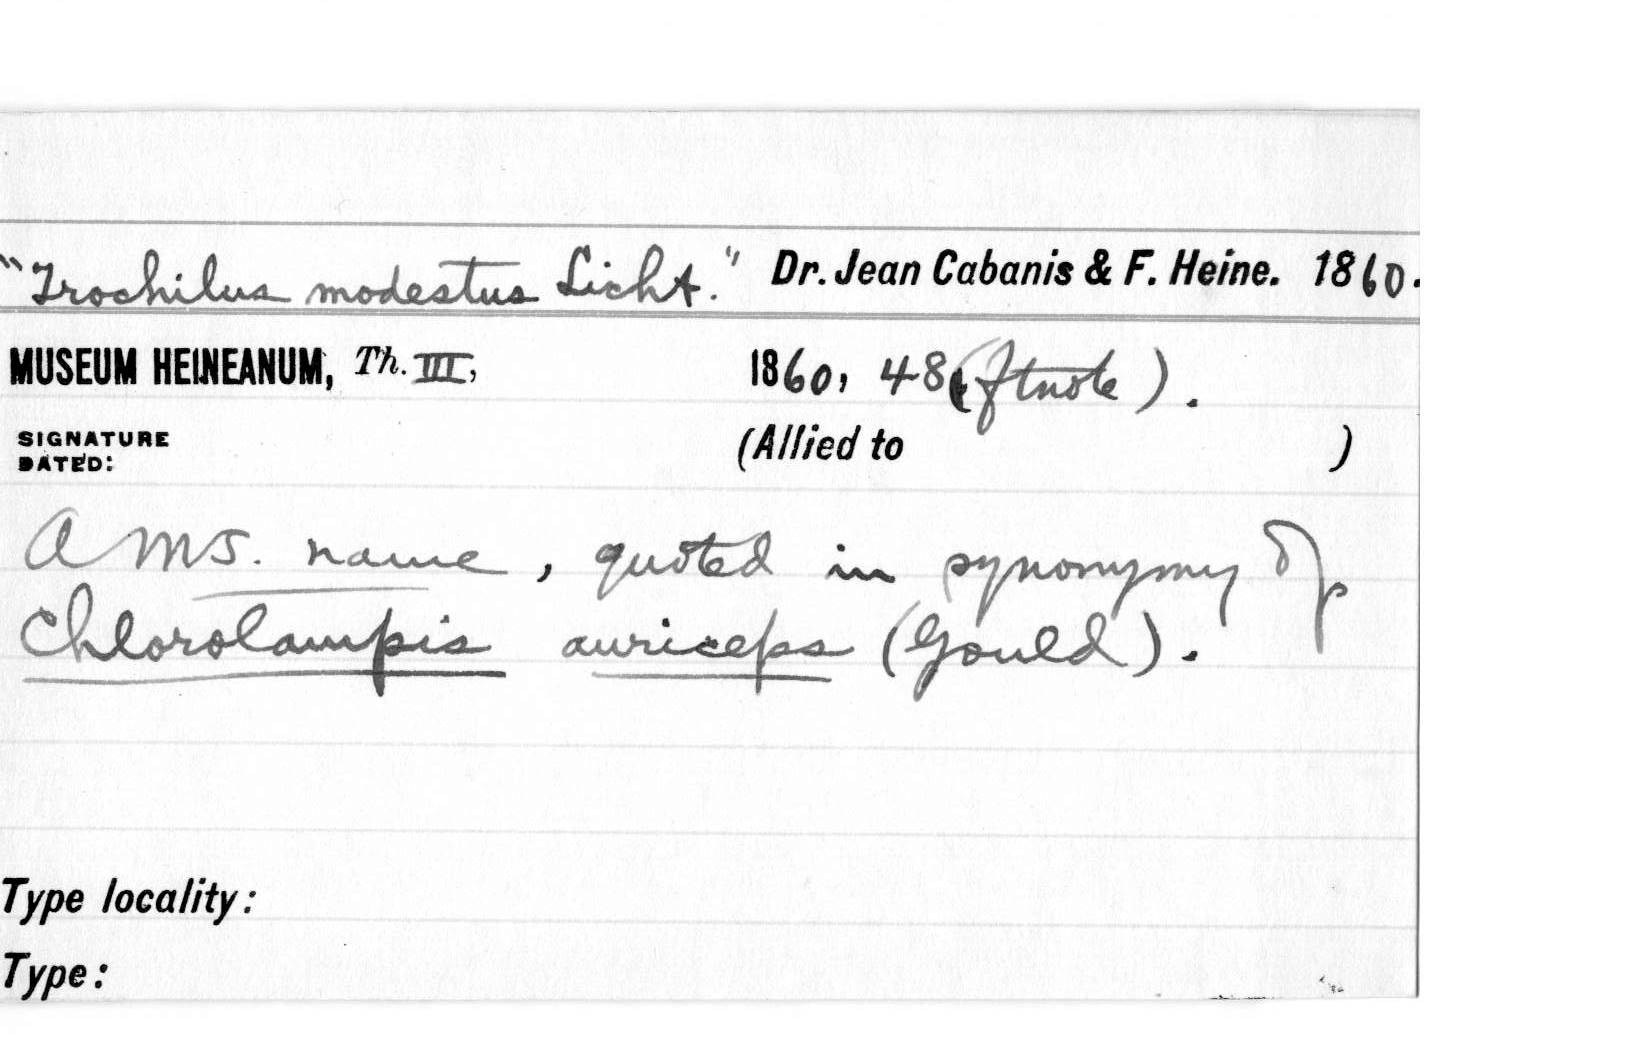 "Trochilus modestus Licht." Dr. Jean Cabanis & F. Heine. 1860.
MUSEUM HEINEANUM, Th. III, 1860, 48 (ftnote).
SIGNATURE DATED: (Allied to )
A MS. name, quoted in synonymy of
Chlorolampis auriceps (Gould).
Type locality:
Type: